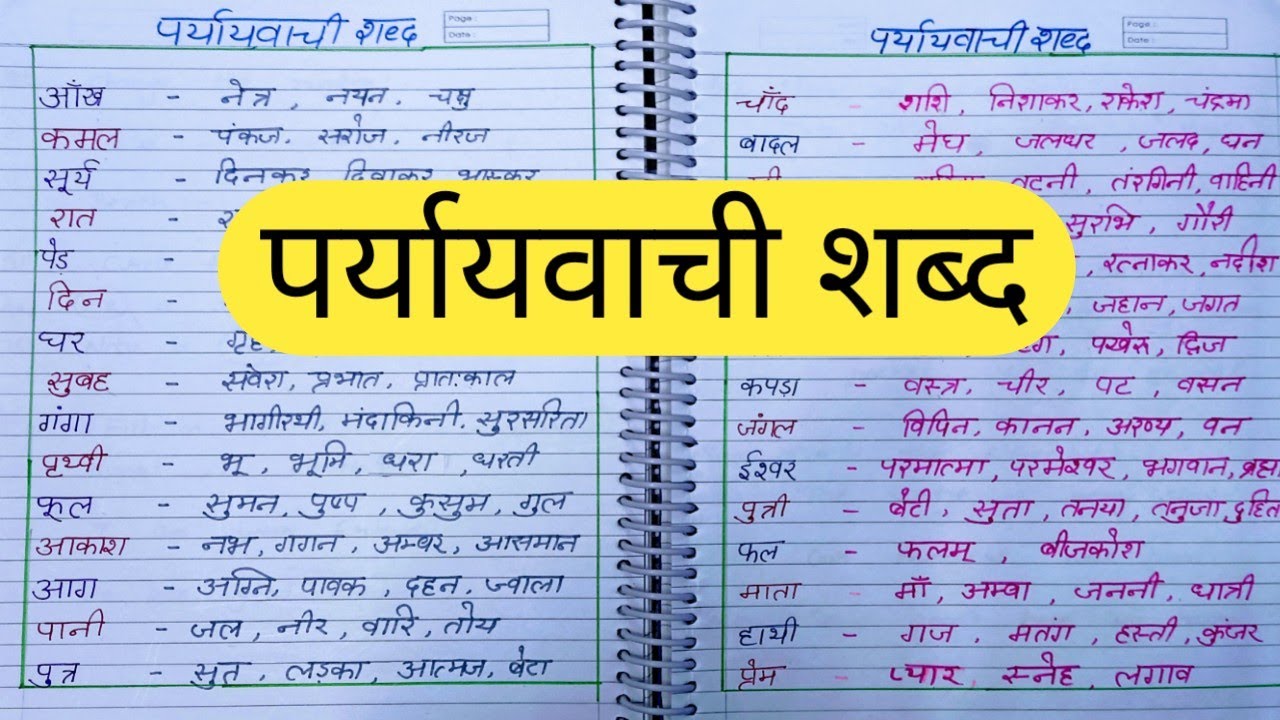 पर्यायवाची शब्द
Page :
Date :
आँख - नेत्र, नयन, चक्षु
कमल - पंकज, सरोज, नीरज
सूर्य - दिनकर, दिवाकर, भास्कर
रात -
पेड़ -
दिन -
घर - गृह,
सुबह - सवेरा, प्रभात, प्रातःकाल
गंगा - भागीरथी, मंदाकिनी, सुरसरिता
पृथ्वी - भू, भूमि, धरा, धरती
फूल - सुमन, पुष्प, कुसुम, गुल
आकाश - नभ, गगन, अम्बर, आसमान
आग - अग्नि, पावक, दहन, ज्वाला
पानी - जल, नीर, वारि, तोय
पुत्र - सुत, लड़का, आत्मज, बेटा
पर्यायवाची शब्द
पर्यायवाची शब्द
Page :
Date :
चाँद - शशि, निशाकर, राकेश, चंद्रमा
बादल - मेघ, जलधर, जलद, घन
तटनी, तंरगिनी, वाहिनी
सुरभि, गौरी
, रत्नाकर, नदीश
, जहान, जगत
, पखेरू, द्विज
कपड़ा - वस्त्र, चीर, पट, वसन
जंगल - विपिन, कानन, अरण्य, वन
ईश्वर - परमात्मा, परमेश्वर, भगवान, ब्रह्मा
पुत्री - बेटी, सुता, तनया, तनुजा, दुहित
फल - फलम्, बीजकोश
माता - माँ, अम्बा, जननी, धात्री
हाथी - गज, मतंग, हस्ती, कुंजर
प्रेम - प्यार, स्नेह, लगाव